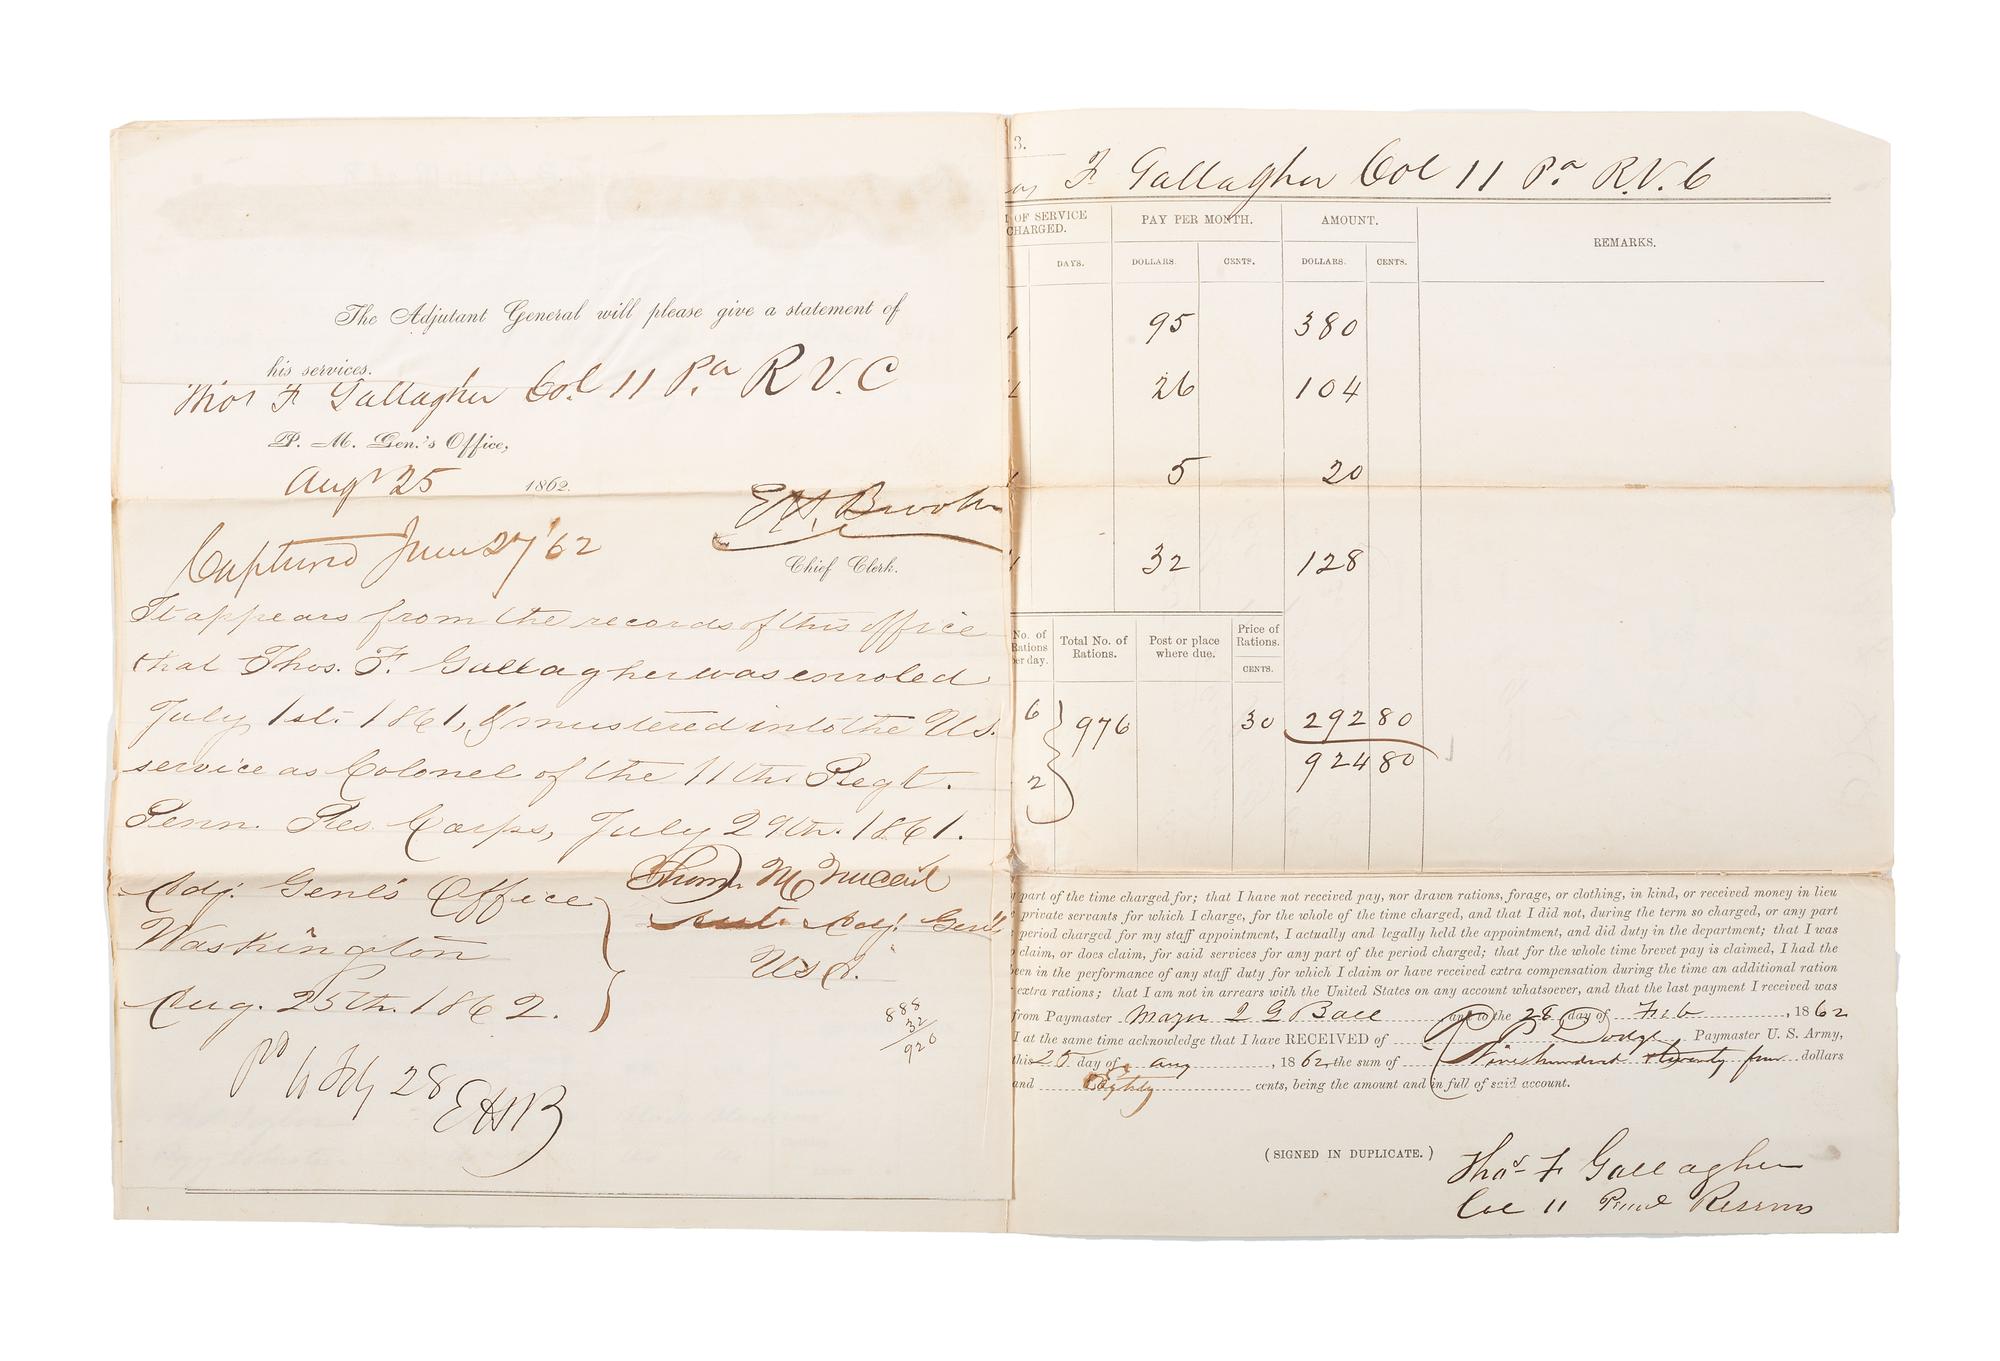 The Adjutant General will please give a statement of
his services.
Thos F Gallagher Col 11 Pa R V. C
P. M. Gen.'s Office,
Augt 25 1862.
Chief Clerk.
Captured June 27/62
It appears from the records of this office
that Thos. F. Gallagher was enroled
July 1st. 1861, & mustered into the U.S.
service as Colonel of the 11th. Regt.
Penn. Res. Corps, July 29th. 1861.
Adj. Genl's Office
Washington
Aug. 25th. 1862.
Asst. Adj. Genl
U S A.
888
32
920
Pd to Feby 28 EHB
3.
F Gallagher Col 11 Pa R. V. C
OF SERVICE
CHARGED. PAY PER MONTH. AMOUNT. REMARKS.
DAYS. DOLLARS. CENTS. DOLLARS. CENTS.
95 380
26 104
5 20
32 128
No. of
Rations
per day. Total No. of
Rations. Post or place
where due. Price of
Rations.
CENTS.
6 976 30 292 80
2 924 80
part of the time charged for; that I have not received pay, nor drawn rations, forage, or clothing, in kind, or received money in lieu
private servants for which I charge, for the whole of the time charged, and that I did not, during the term so charged, or any part
period charged for my staff appointment, I actually and legally held the appointment, and did duty in the department; that I was
claim, or does claim, for said services for any part of the period charged; that for the whole time brevet pay is claimed, I had the
een in the performance of any staff duty for which I claim or have received extra compensation during the time an additional ration
extra rations; that I am not in arrears with the United States on any account whatsoever, and that the last payment I received was
from Paymaster Major I G Ball and to the 28 day of Feb, 1862
I at the same time acknowledge that I have RECEIVED of Dodge Paymaster U. S. Army,
this 25 day of Aug, 1862, the sum of Nine hundred & twenty four dollars
and Eighty cents, being the amount and in full of said account.
(SIGNED IN DUPLICATE.)
Thos F Gallagher
Col 11 Penna Reserves